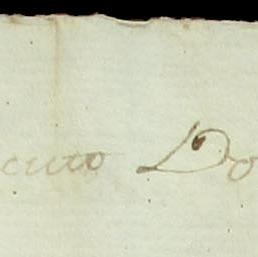 cuto Do